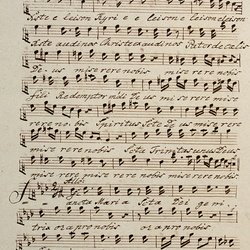 Xste eleison Kyri e e leison e leison eleison
Xste audi nos Christe exaudi nos Pater de Celis
De us mise rere nobis mise rere nobis
fili Redemptor mundi Deus mi se re re mi se
rere no bis Spiritus Ste Deus mi se re re
mi se re re nobis Sta Trinitas unus Deus
mi se re re nobis mi se re re nobis
Solo
Sancta Maria Sta Dei ge ni
trix ora pro nobis ora pro nobis